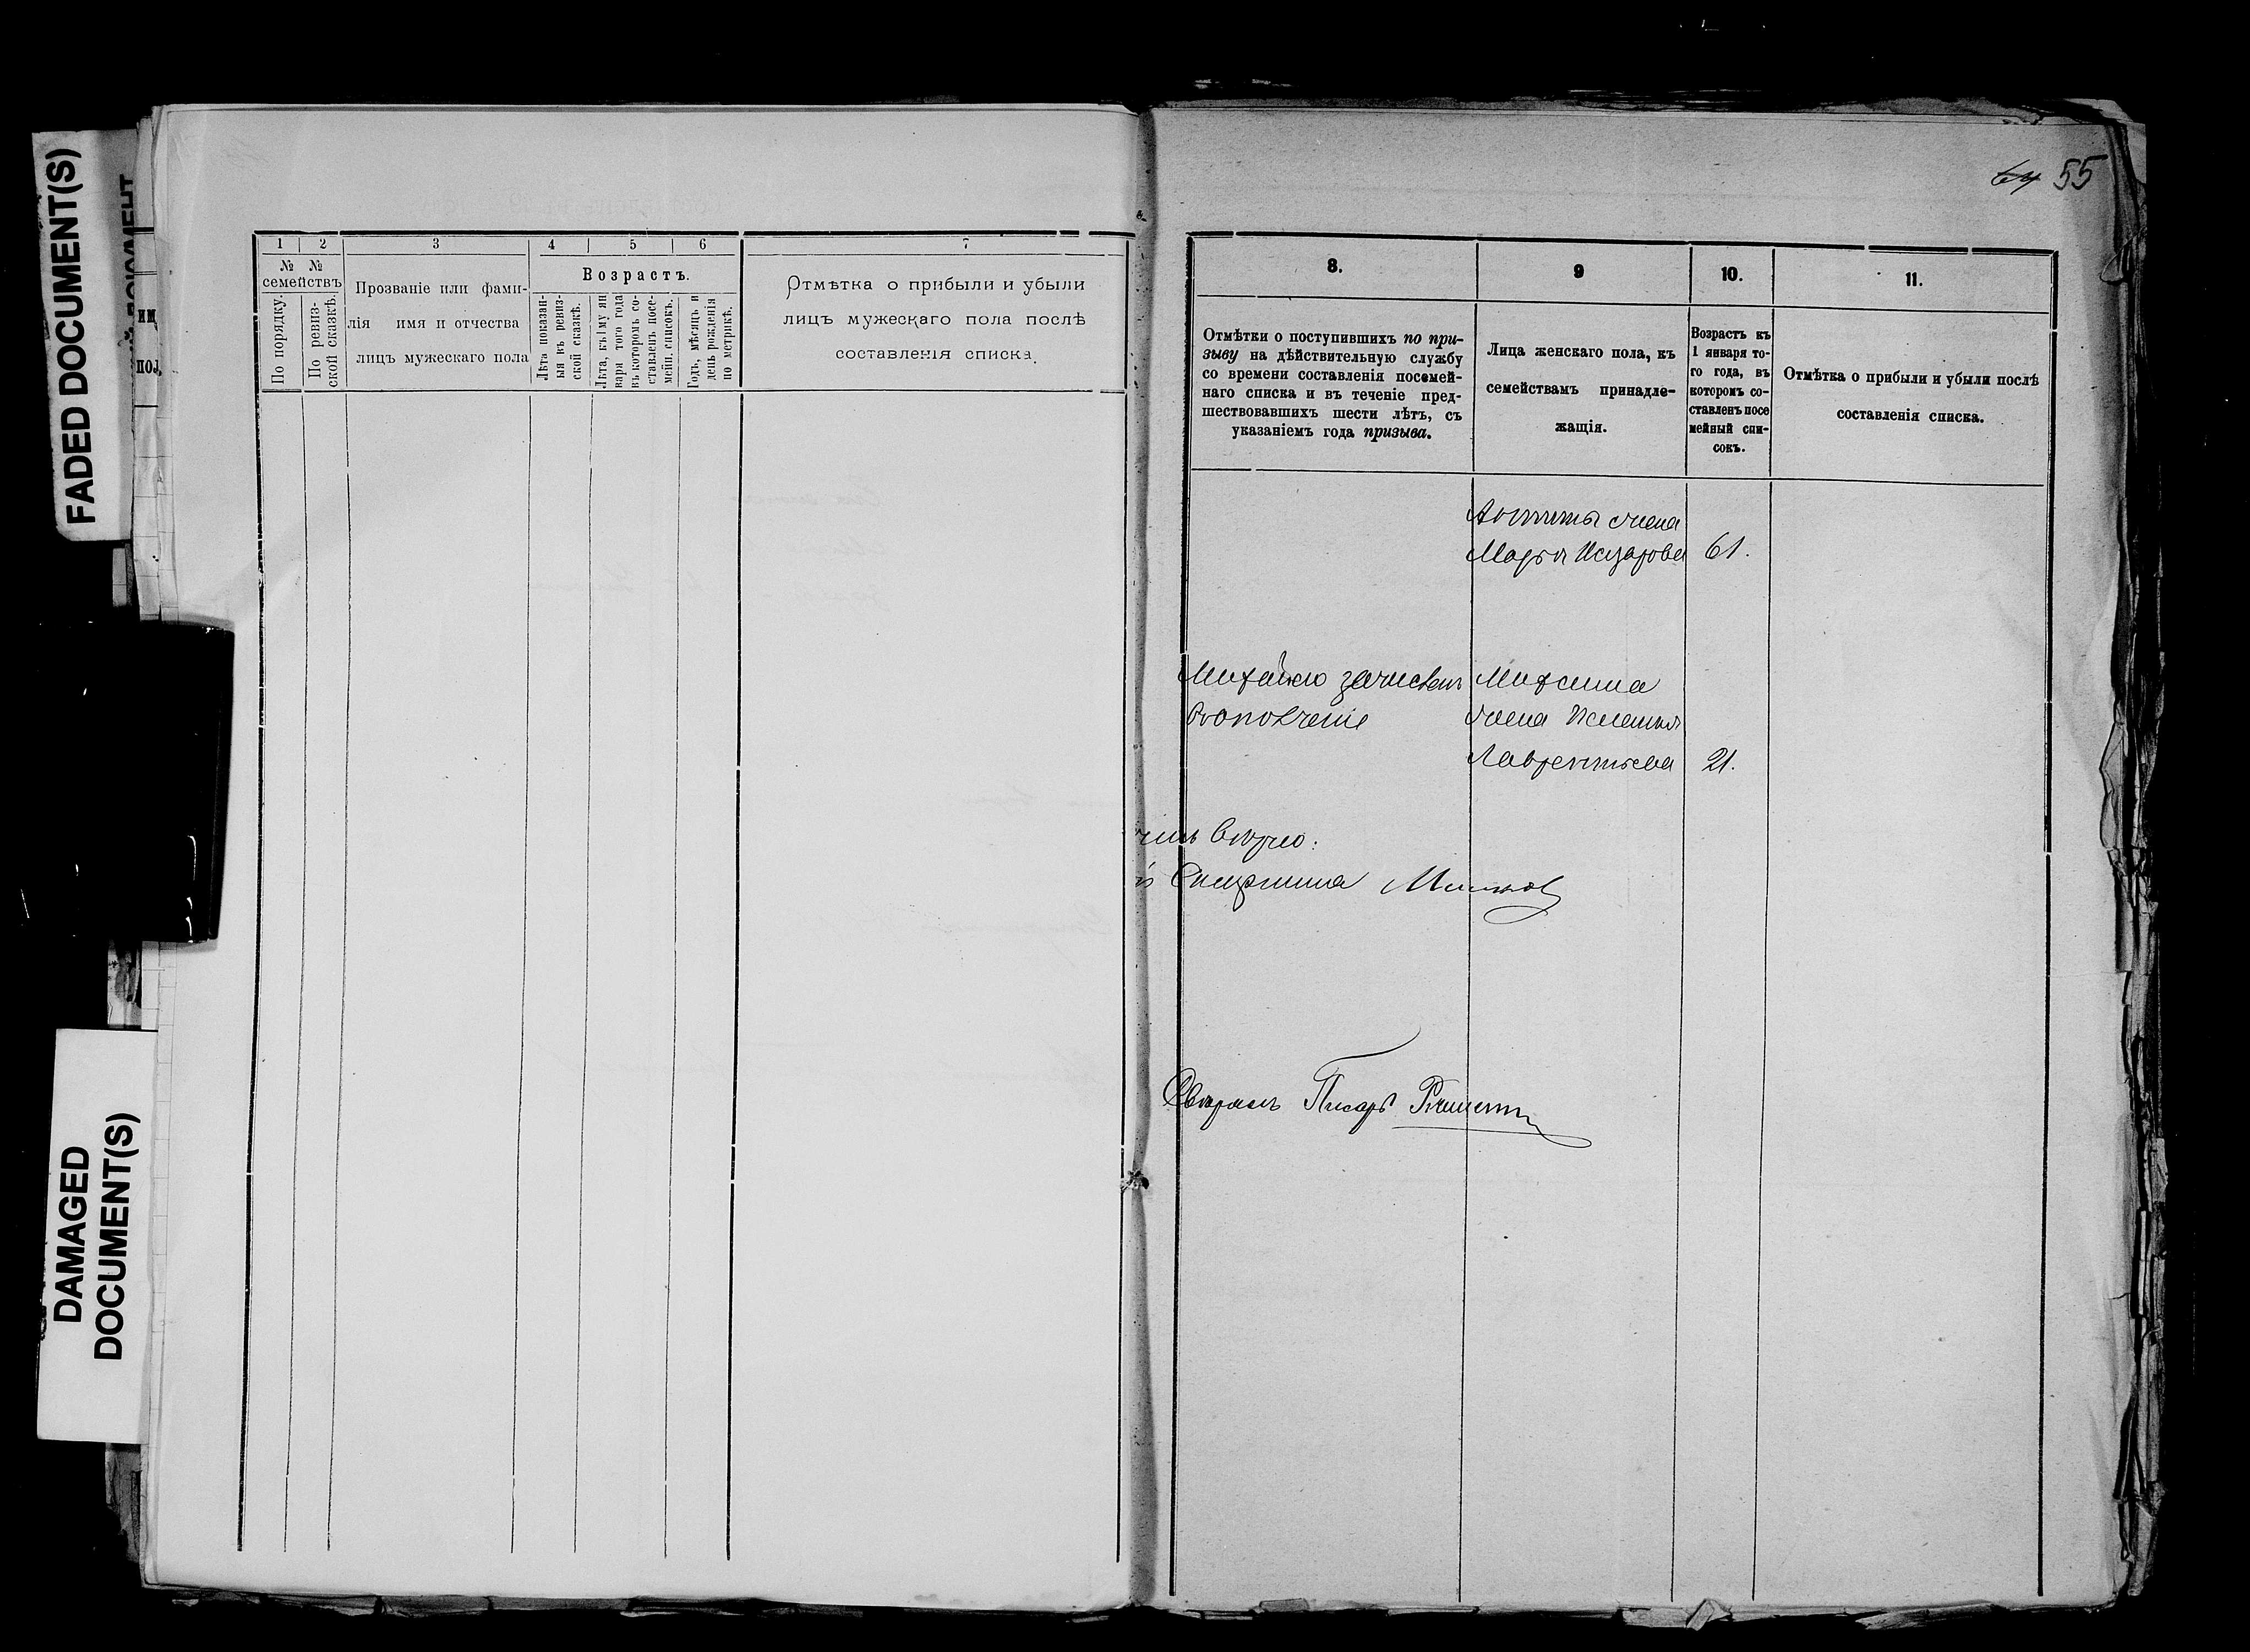 FADED DOCUMENT(S)
DAMAGED
DOCUMENT(S)
1 2 3 4 5 6 7
№ №
семействъ
По порядку.
По ревиз-
ской сказкѣ.
Прозваніе или фами-
лія имя и отчества
лицъ мужескаго пола
Возрастъ.
Лѣта показан-
ыя въ ревиз-
ской сказкѣ.
Лѣта, къ 1му ян
варя того года
въ которомъ со-
ставленъ посе-
мейн. списокъ.
Годъ, мѣсяцъ и
день рожденія
по метрикѣ.
Отмѣтка о прибыли и убыли
лицъ мужескаго пола послѣ
составленія списка.
55
8. 9 10. 11.
Отмѣтки о поступившихъ по при-
зыву на дѣйствительную службу
со времени составленія посемей-
наго списка и въ теченіе пред-
шествовавшихъ шести лѣтъ, съ
указаніемъ года призыва.
Лица женскаго пола, къ
семействамъ принадле-
жащія.
Возрастъ къ
1 января то-
го года, въ
которомъ со-
ставленъ посе
мейный спи-
сокъ.
Отмѣтка о прибыли и убыли послѣ
составленія списка.
жена
Марья Назарова 61.
зачисленъ
въ ополченіе
жена
Лаврентьева 21.
вѣрно:
Старшина
Свѣрялъ Писарь